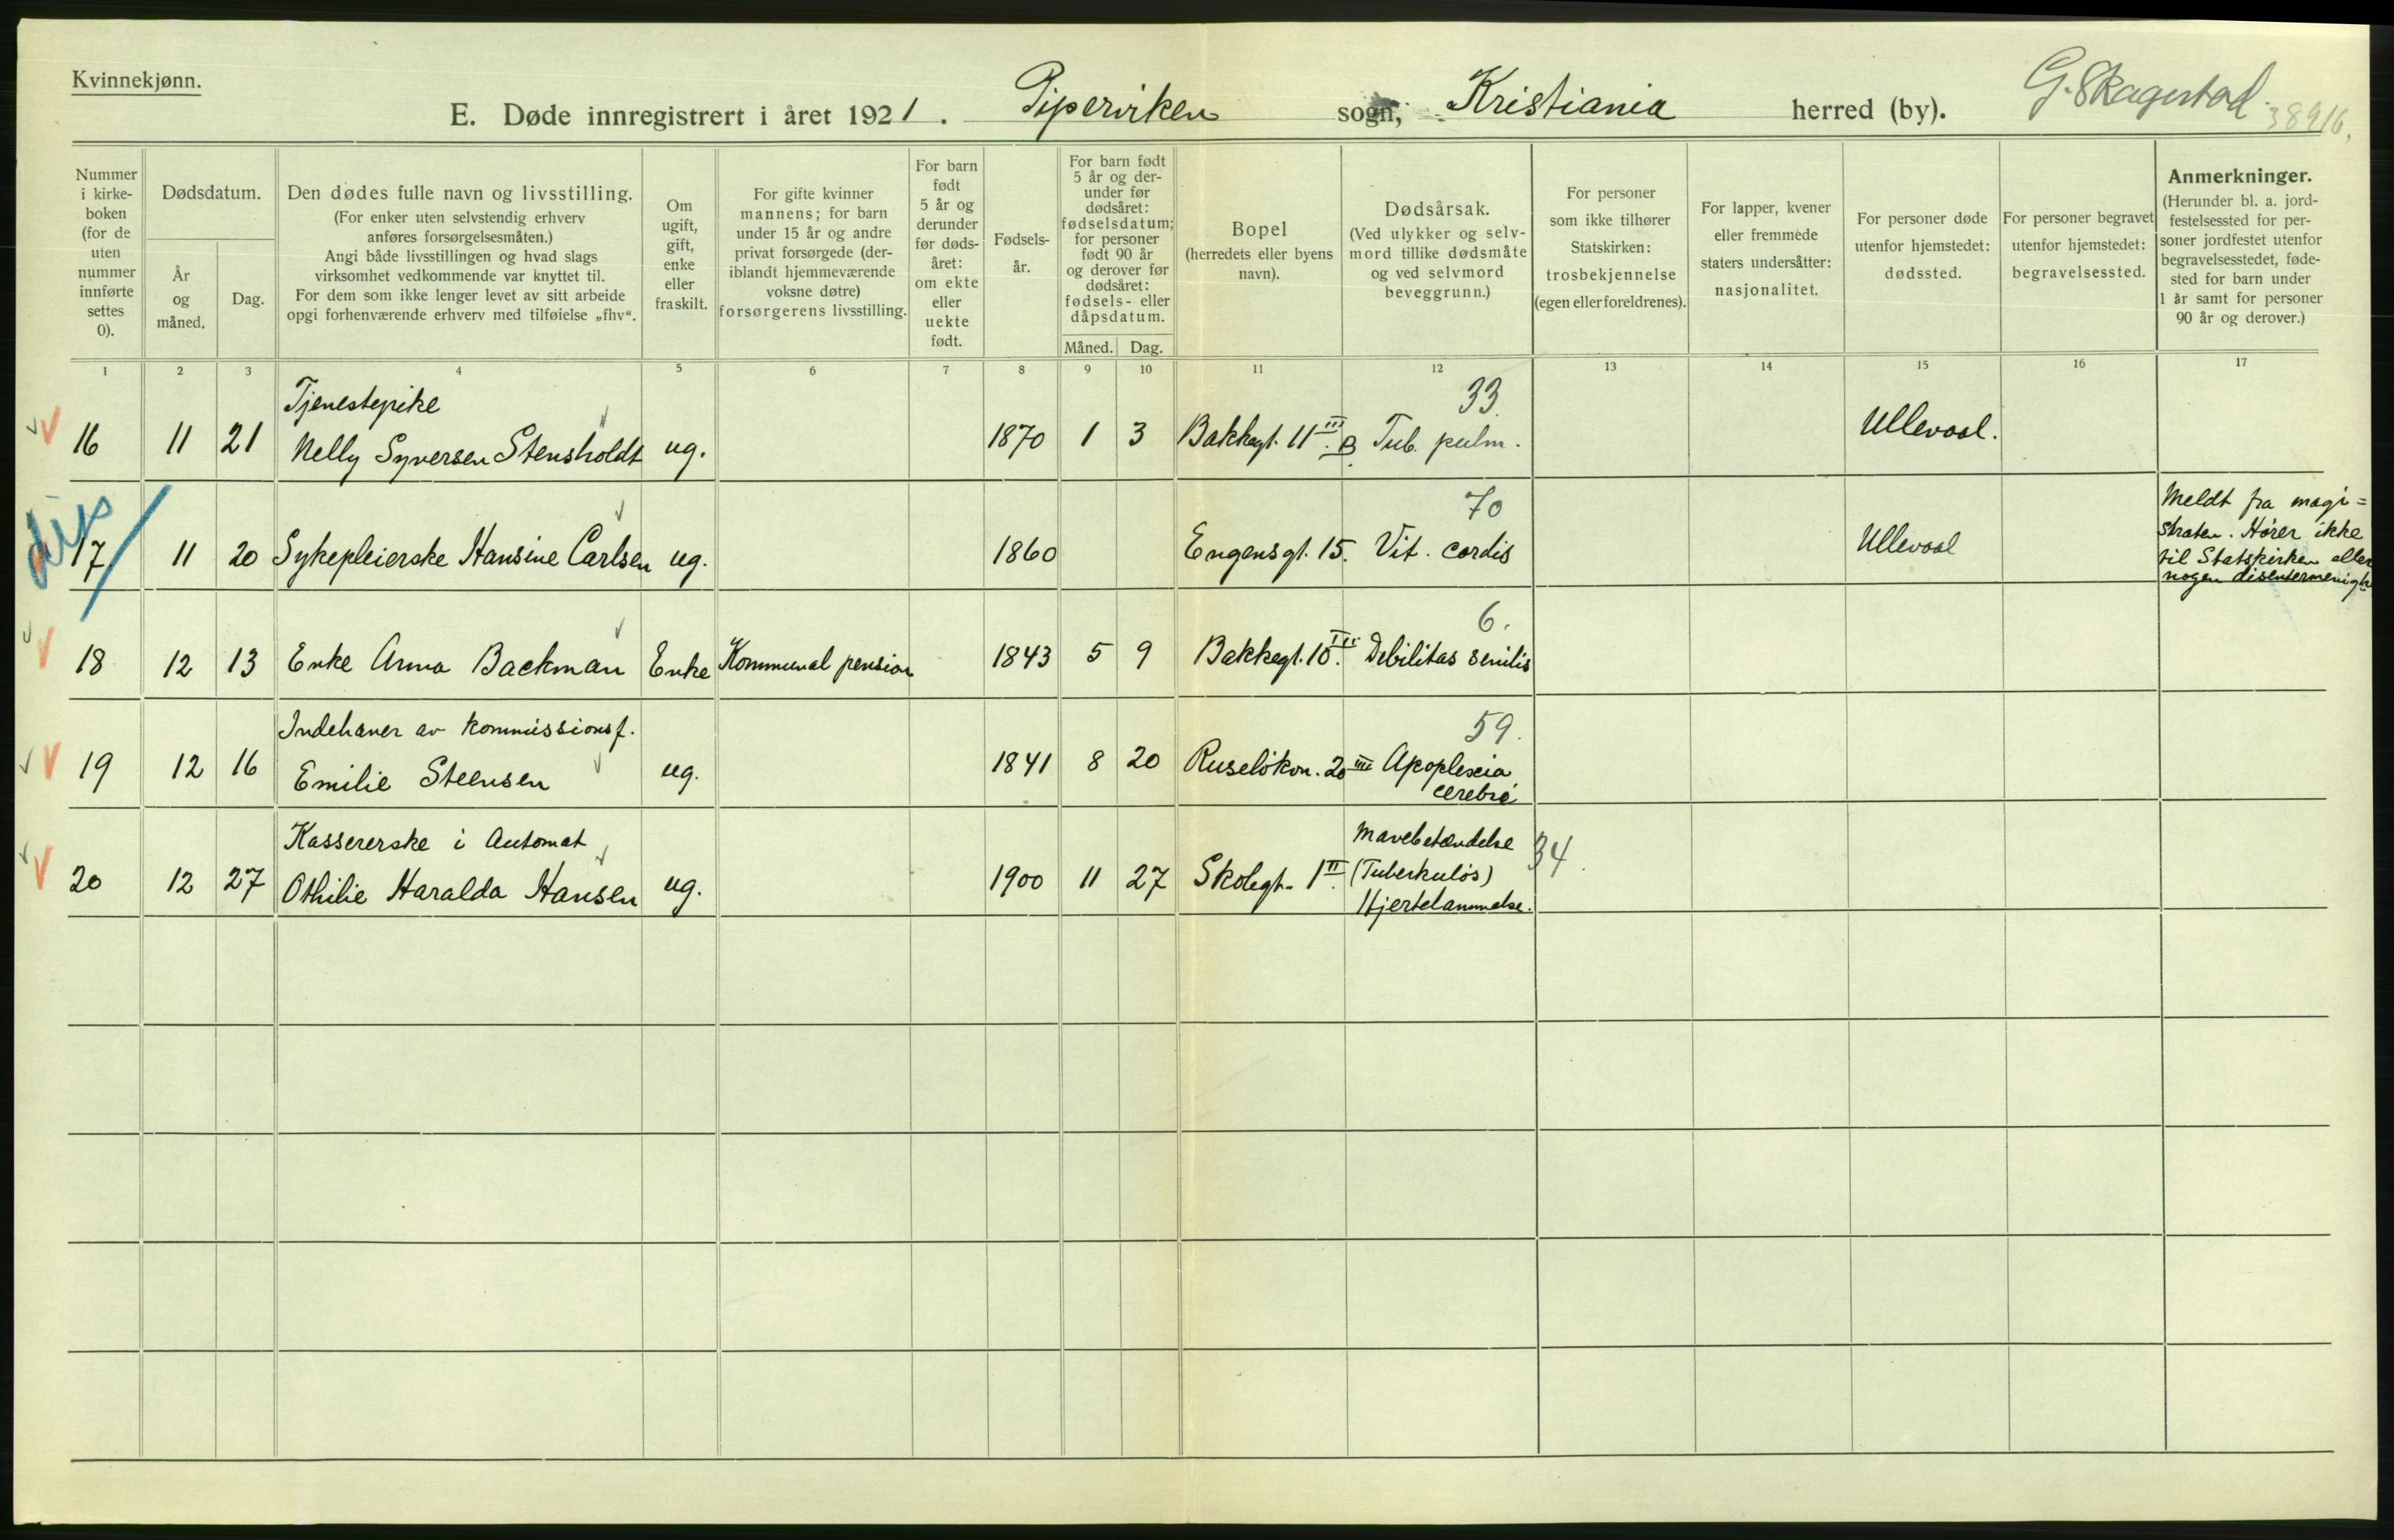 Kvinnekjønn.
E. Døde innregistrert i året 1921. Pipervirken sogn, Kristiania herred (by). G. Skagestad. 38916.
Nummer i kirke-boken (for de uten nummer innførte settes 0).
Dødsdatum.
År og måned.
Dag.
Den dødes fulle navn og livsstilling.
(For enker uten selvstendig erhverv
anføres forsørgelsesmåten.)
Angi både livsstillingen og hvad slags
virksomhet vedkommende var knyttet til.
For dem som ikke lenger levet av sitt arbeide
opgi forhenværende erhverv med tilføielse „fhv“.
Om
ugift,
gift,
enke
eller
fraskilt.
For gifte kvinner
mannens; for barn
under 15 år og andre
privat forsørgede (der-
iblandt hjemmeværende
voksne døtre)
forsørgerens livsstilling.
For barn
født
5 år og
derunder
før døds-
året:
om ekte
eller
uekte
født.
Fødsels-
år.
For barn født
5 år og der-
under før
dødsåret:
fødselsdatum;
for personer
født 90 år
og derover før
dødsåret:
fødsels- eller
dåpsdatum.
Måned. Dag.
Bopel
(herredets eller byens
navn).
Dødsårsak.
(Ved ulykker og selv-
mord tillike dødsmåte
og ved selvmord
beveggrunn.)
For personer
som ikke tilhører
Statskirken:
trosbekjennelse
(egen eller foreldrenes).
For lapper, kvener
eller fremmede
staters undersåtter:
nasjonalitet.
For personer døde
utenfor hjemstedet:
dødssted.
For personer begravet
utenfor hjemstedet:
begravelsessted.
Anmerkninger.
(Herunder bl. a. jord-
festelsessted for per-
soner jordfestet utenfor
begravelsesstedet, føde-
sted for barn under
1 år samt for personer
90 år og derover.)
1 2 3 4 5 6 7 8 9 10 11 12 13 14 15 16 17
Tjenestepike 33.
16 11 21 Nelly Syversen Stensholdt ug. 1870 1 3 Bakkegt. 11 III B Tub. pulm. Ullevaal.
dis 70
17 11 20 Sykepleierske Hansine Carlsen ug. 1860 Engensgt. 15. Vit. cordis Ullevaal
Meldt fra magi=
straten. Hører ikke
til Statskirken eller
nogen disentermenigh
6.
18 12 13 Enke Anna Backman Enke Kommunal pension 1843 5 9 Bakkegt. 10 III. Debilitas senilis
Indehaver av kommissionsf. 59.
19 12 16 Emilie Steensen ug. 1841 8 20 Ruseløkvn. 20 III Apoplexia
cerebri
Kassererske i Automat Mavebetændelse 34.
20 12 27 Othilie Haralda Hansen ug. 1900 11 27 Skolegt. 1 II. (Tuberkuløs)
Hjertelammelse.